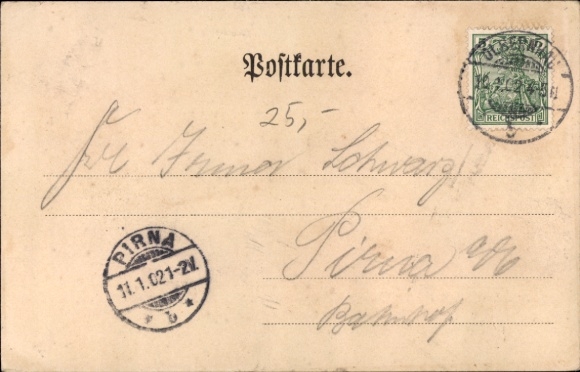 Postkarte.
25,-
REICHSPOST
Frl. Irma Schwarz
PIRNA
11.1.02 1-2V.
* b *
Pirna
Bahnhof